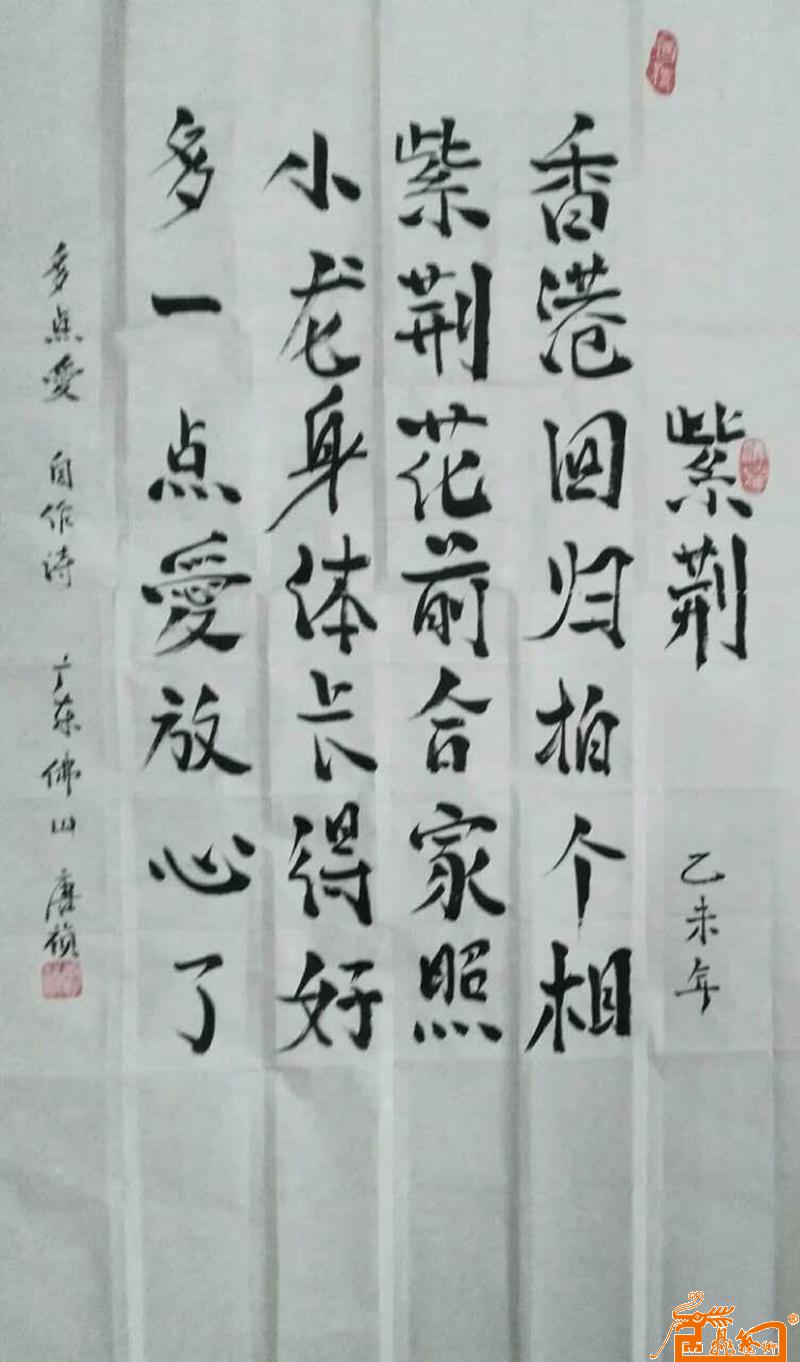 紫荆 乙未年
香港回归拍个相
紫荆花前合家照
小龙身体长得好
多一点爱放心了
多点爱 自作诗 广东佛山 唐祯